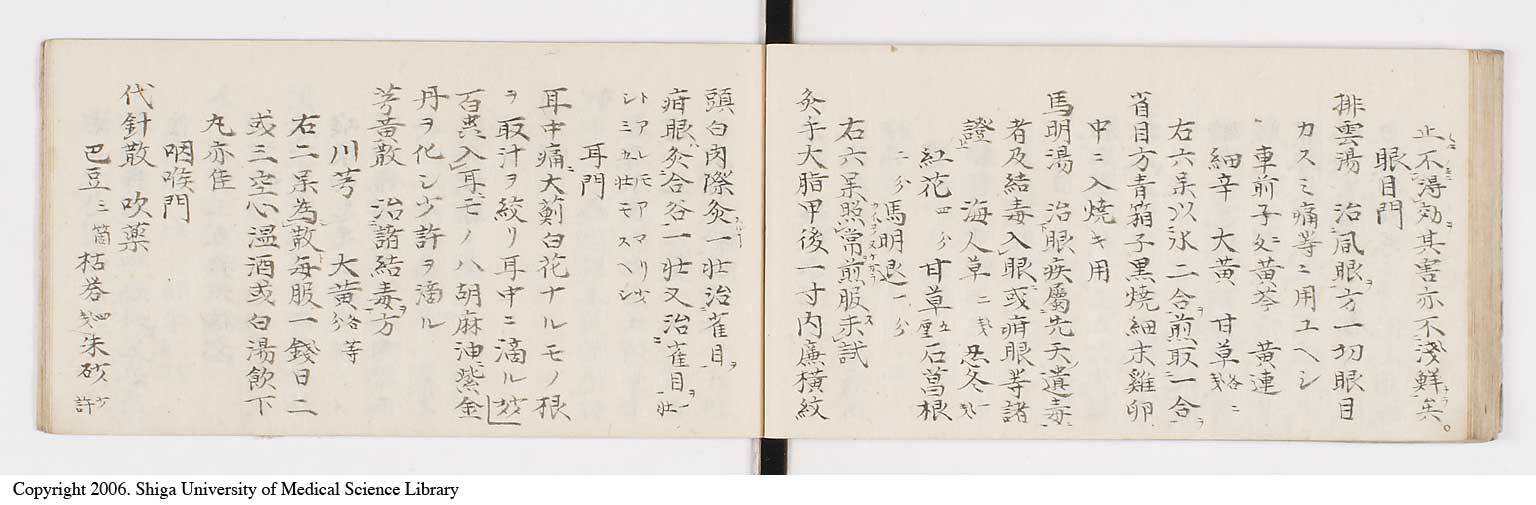 止不得効其害亦不淺鮮矣。
眼目門
排雲湯 治風眼方一切眼目
カスミ痛等ニ用ユヘシ
車前子 黄芩 黄連
細辛 大黄 甘草 各二
右六味以水二合煎取一合
省目方青箱子黒焼細末雞卵
中ニ入焼キ用
馬明湯 治眼疾屬先天遺毒
者及結毒入眼或疳眼等諸
證 海人草 二 忍冬 一
紅花 四分 甘草 五分 石菖根
二分 馬明退 一分
右六味照常煎服 未試
灸手大脂甲後一寸内廉横紋
頭白肉際灸一壮治雀目
疳眼灸合谷一壮又治雀目 一壮
トアレモアマリ少
シミ五壮モスヘシ
耳門
耳中痛大薊白花ナルモノ根
ヲ取汁ヲ絞リ耳中ニ滴ル
百虫入耳モノハ胡麻油紫金
丹ヲ化シ少許ヲ滴ル
芎黄散 治諸結毒方
川芎 大黄 各等分
右二味為散毎服一錢日二
或三空心温酒或白湯飲下
丸亦佳
咽喉門
代針散 吹薬
巴豆 三箇 枯礬 朱砂 少許
Copyright 2006. Shiga University of Medical Science Library